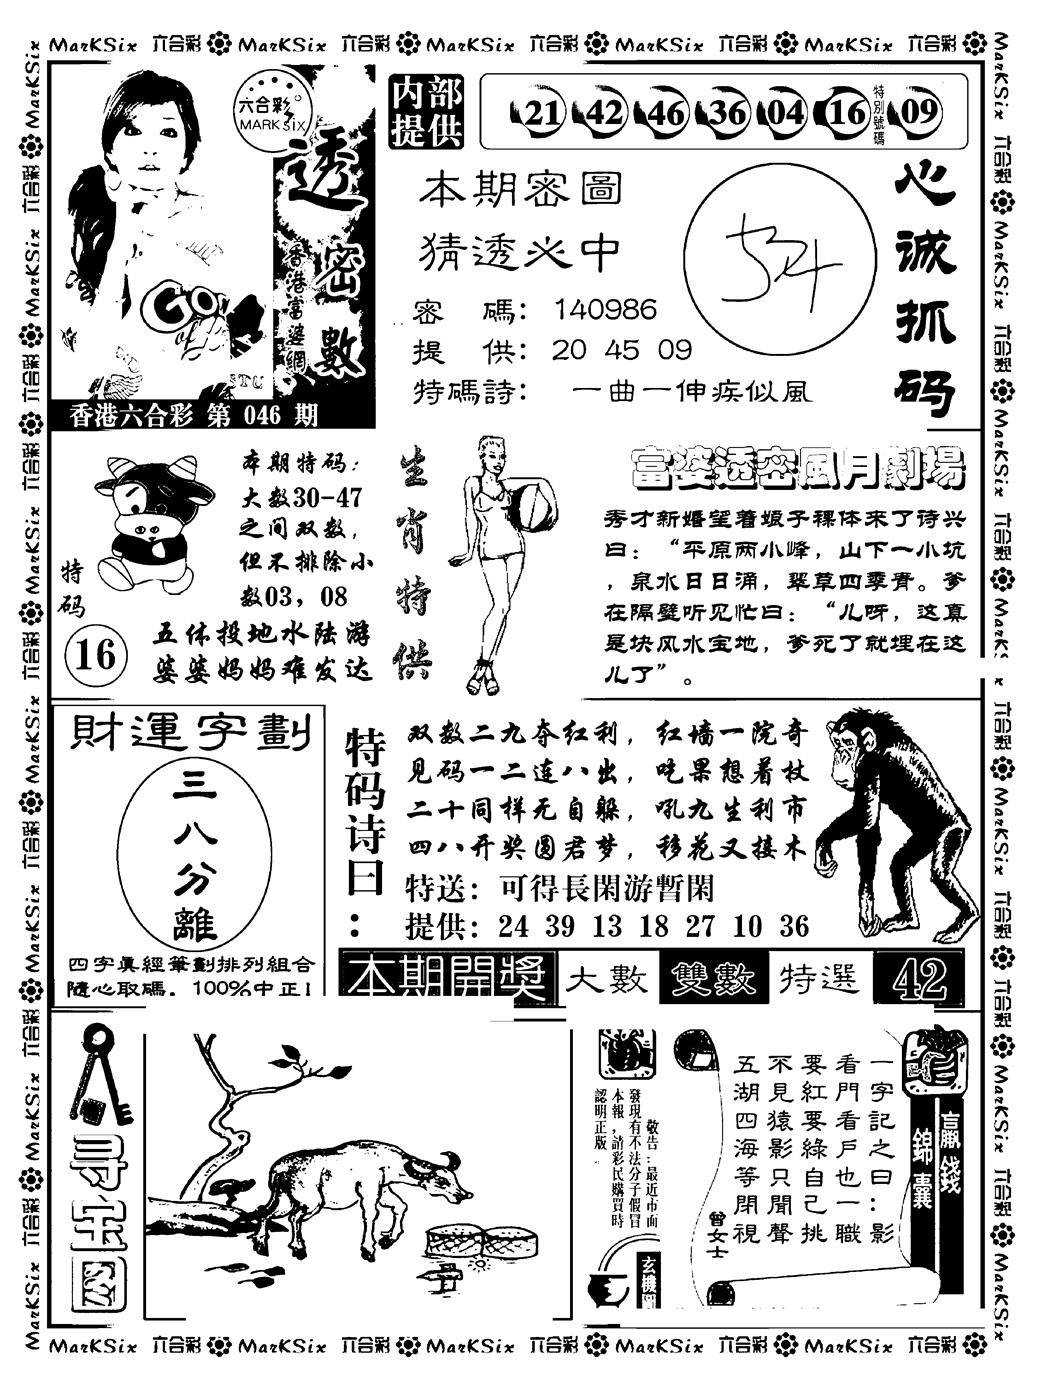 MarKSix 六合彩 MarKSix 六合彩 MarKSix 六合彩 MarKSix 六合彩 MarKSix 六合彩
六合彩
MARK SIX
透密數
香港富婆網
香港六合彩 第 046 期
内部
提供
21 42 46 36 04 16 特別號碼 09
本期密圖
猜透必中
密 碼: 140986
提 供: 20 45 09
特碼詩: 一曲一伸疾似風
心誠抓码
特码
16
本期特码:
大数30-47
之间双数,
但不排除小
数03, 08
五体投地水陆游
婆婆妈妈难发达
生肖特供
富婆透密風月劇場
秀才新婚望着娘子裸体来了诗兴
曰: “平原两小峰, 山下一小坑
, 泉水日日涌, 翠草四季青。爹
在隔壁听见忙曰: “儿呀, 这真
是块风水宝地, 爹死了就埋在这
儿了”。
財運字劃
三八分離
四字真經筆劃排列組合
隨心取碼. 100%中正!
特码诗曰:
双数二九夺红利, 红墙一院奇
见码一二连八出, 吃果想着杖
二十同样无自躲, 吼九生利市
四八开奖圆君梦, 移花又接木
特送: 可得長閑游暫閑
提供: 24 39 13 18 27 10 36
本期開獎 大數 雙數 特選 42
寻宝图
敬告:最近市面
發現有不法分子假冒
本報,請彩民購買時
認明正版
玄機圖
贏錢
錦囊
一字記之曰:影
看門看戶也一職
要紅要綠自己挑
不見猿影只聞聲
五湖四海等閑視
曾女士
MarKSix 六合彩 MarKSix 六合彩 MarKSix 六合彩 MarKSix 六合彩 MarKSix 六合彩